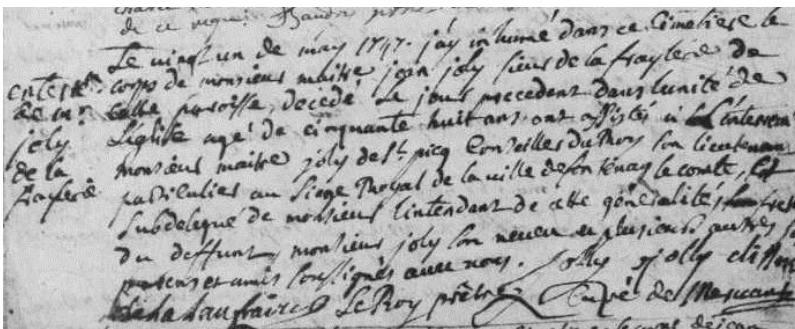 de ce requis
Le vingt un de may 1747. jay inhumé dans ce Cimetiere le
corps de monsieur maitre jean joly sieur de la frayterie de
cette paroisse, decedé le jour precedent dans lunité de
Leglise agé de cinquante huit ans ont assistés a Linterrem
monsieur maitre joly de St picq Conseiller du Roy son lieutenant
particulier au Siege Royal de la ville de fontenay le comte, Et
Subdelegué de monsieur lintendant de cette généralité, frere
du deffunt, monsieur joly son neveu et plusieurs autres
parens et amis soussignés avec nous. Jolly jolly
LeRoy prêtre Curé de
enterrem
de mr
joly
de la
frayterie